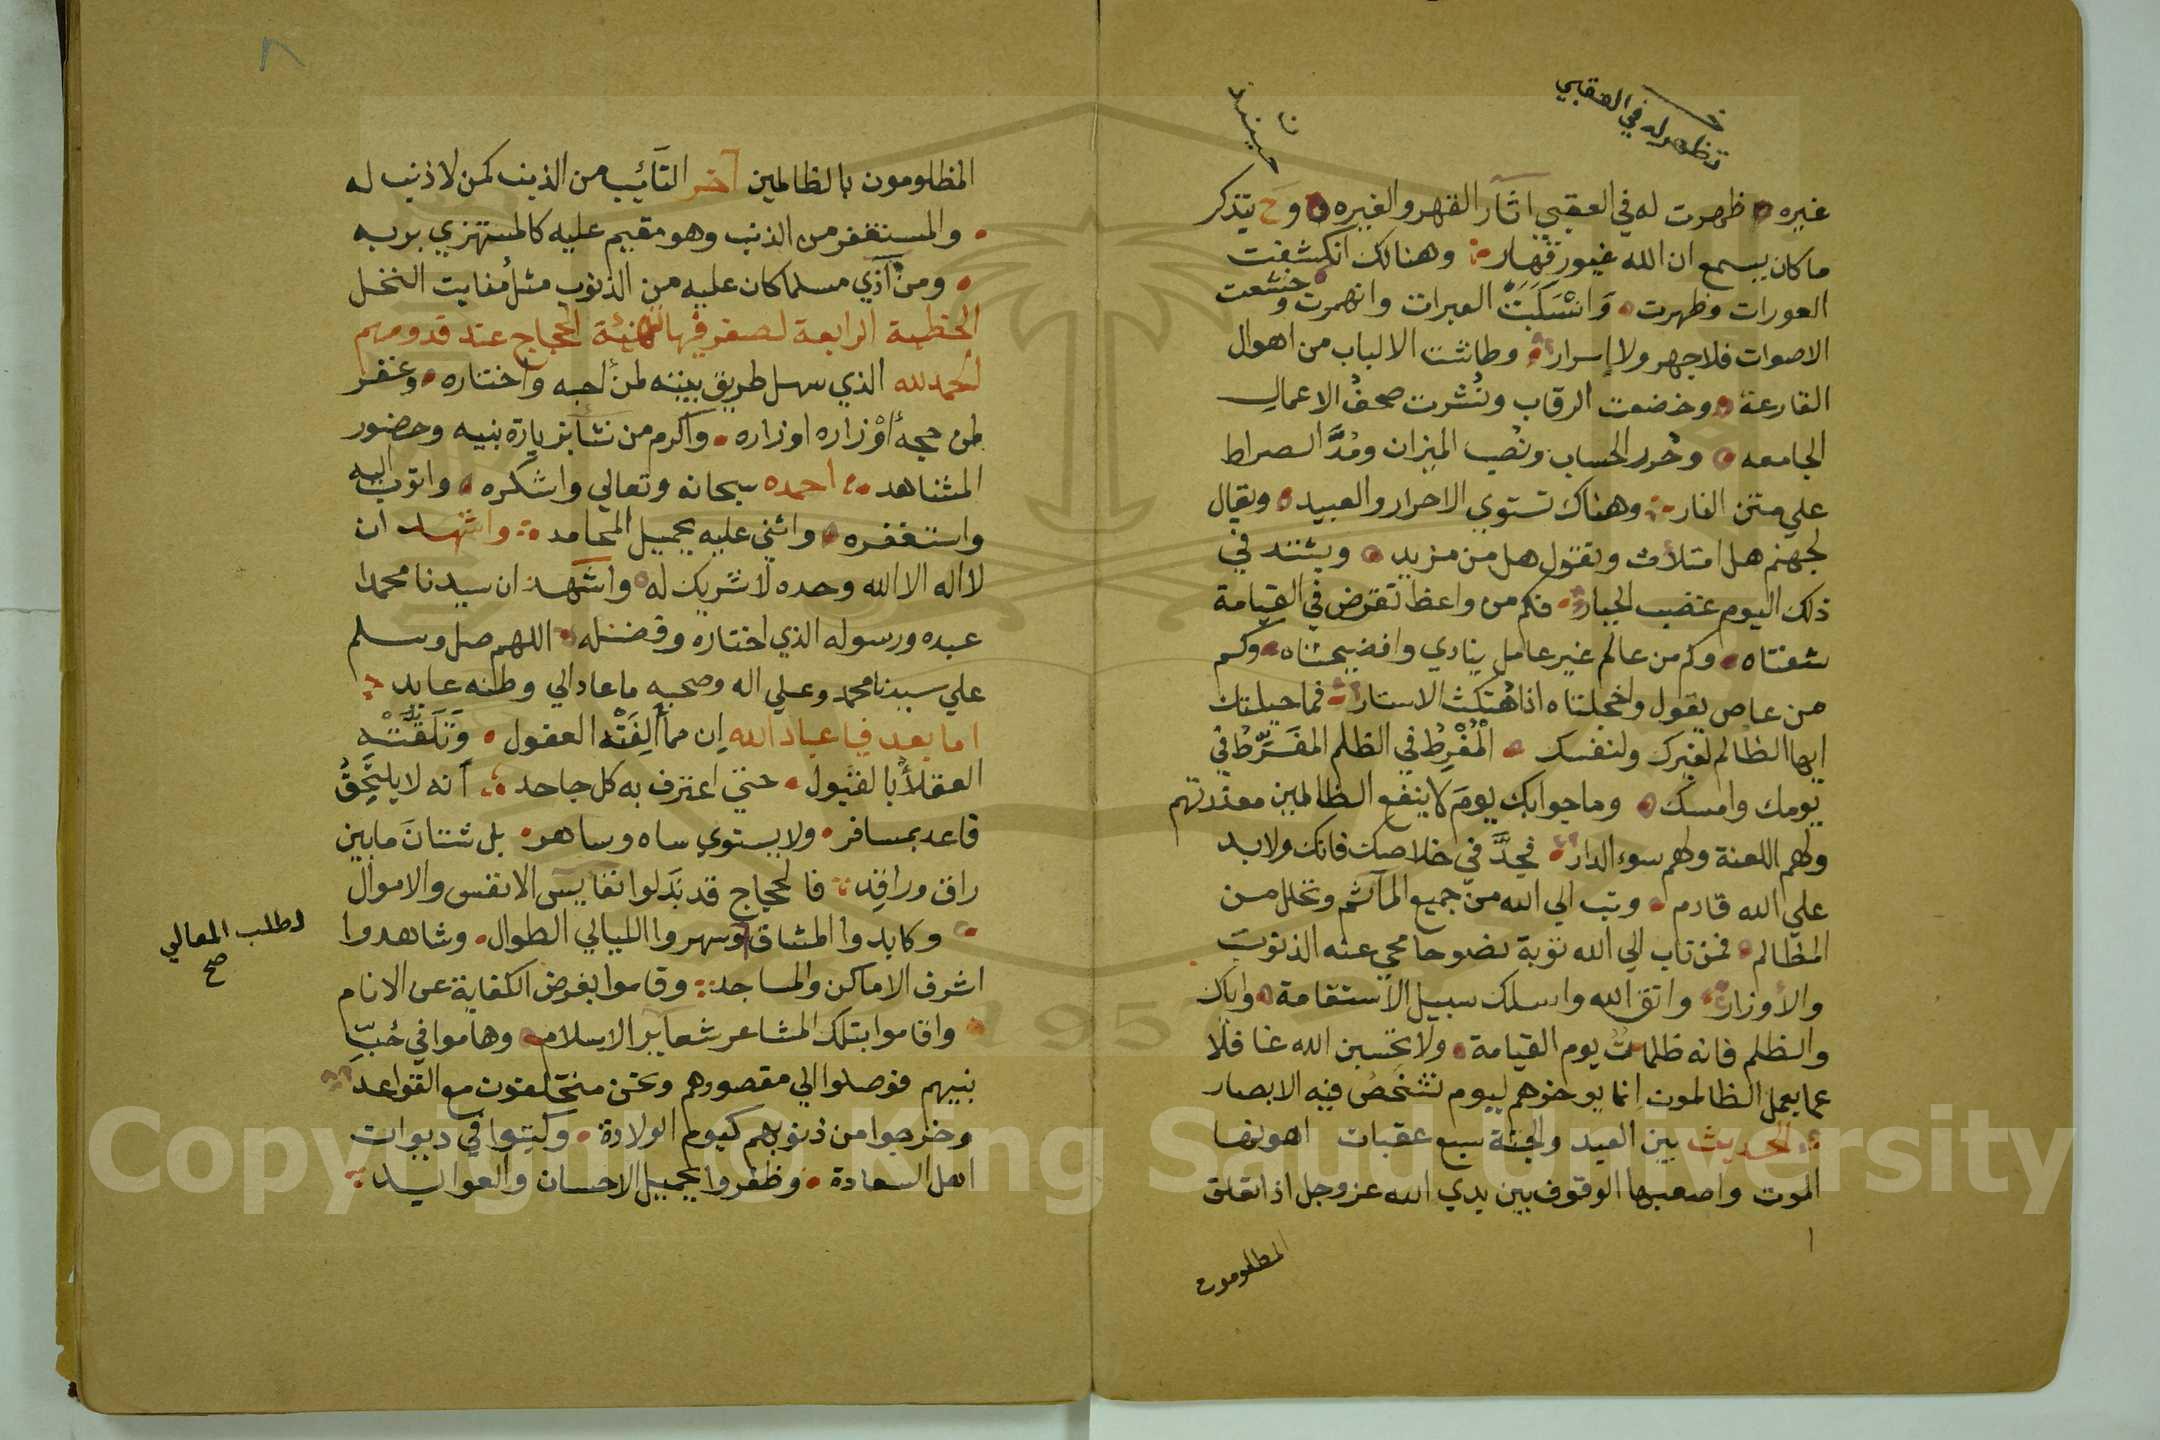 تظهر له في العقبي
ن حينئذ
غيره ظهرت له في العقبي اثآر القهر والغيره وح يتذكر
ما كان يسمع ان الله غيور قهار وهنالك انكشفت
العورات وظهرت وَانْسَكَبَتْ العبرات وانهمرت وخشعت
الاصوات فلا جهر ولا إسرار وطاشت الالباب من اهوال
القارعة وخضعت الرقاب ونُشرت صحفُ الاعمال
الجامعه وحُرر الحساب ونُصب الميزان ومُدَّ الصراط
علي متن النار وهناك تستوي الاحرار والعبيد ويقال
لجهنم هل امتلأت وتقول هل من مزيد ويشتد في
ذلك اليوم غضب الجبار فكم من واعظ تقرض في القيامة
شفتاه وكم من عالم غير عامل ينادي وافضيحتاه وكم
من عاص يقول واخجلتاه اذا هُتكت الاستار فما حيلتك
ايها الظالم لغيرك ولنفسك الْمُفْرِطُ في الظلم المفَرِّطُ في
يومك وامسك وما جوابك يومَ لا ينفع الظالمين معذرتهم
ولهم اللعنة ولهم سوء الدار فجِدَّ في خلاصك فانك ولا بد
علي الله قادم وتب الي الله من جميع المآثم وتحلل من
المظالم فمن تاب الي الله توبة نصوحا محي عنه الذنوب
والأوزار واتق الله واسلك سبيل الاستقامة واياك
والظلم فانه ظلمات يوم القيامة ولا تحسبن الله غافلا
عما يعمل الظالمون انما يوخرهم ليوم تشخَصُ فيه الابصار
الحديث بين العبد والجنة سبع عقبات اهونها
الموت واصعبها الوقوف بين يدي الله عز وجل اذا تعلق
المظلومون
٨
المظلومون بالظالمين آخر التآئب من الذنب كمن لا ذنب له
والمستغفر من الذنب وهو مقيم عليه كالمستهزي بربه
ومن آذي مسلما كان عليه من الذنوب مثلُ منابت النخل
الخطبة الرابعة لصفر فيها تهنئة الحجاج عند قدومهم
الحمد لله الذي سهل طريق بيته لمن احبه واختاره وغفر
لمن حجه أوْ زاره اوزاره واكرم من شآء بزيارة نبيه وحضور
المشاهد احمده سبحانه وتعالي واشكره واتوب اليه
واستغفره واثني عليه بجميل المحامد واشهد ان
لا اله الا الله وحده لا شريك له واشهد ان سيدنا محمدا
عبده ورسوله الذي اختاره وفضله اللهم صل وسلم
علي سيدنا محمد وعلي اله وصحبه ما عاد الي وطنه عايد
اما بعد فيا عباد الله إن مما ألِفَتْه العقول وَتَلَقَّتْهِ
العقلاُ بالقبُول حتي اعترف به كل جاحد أنه لا يلتَحِقُ
قاعد بمسافر ولا يستوي ساه وساهر بل شتانَ ما بين
راق وراقِد فالحجاج قد بَذلوا نفايسَ الانفس والاموال
وكابدوا المشاق وسهروا الليالي الطوال وشاهدوا
لطلب المعالي
صح
اشرف الاماكن والمساجد وقاموا بفرض الكفاية عن الانام
واقاموا بتلك المشاعر شعآير الاسلام وهاموا في حُبِّ
نبيهم فوصلوا الي مقصورهم ونحن متخلفون مع القواعد
وخرجوا من ذنوبهم كيوم الولادة وكُتبوا في ديوان
اهل السعادة وظفروا بجميل الاحسان والعوايد
Copyright © King Saud University
1957